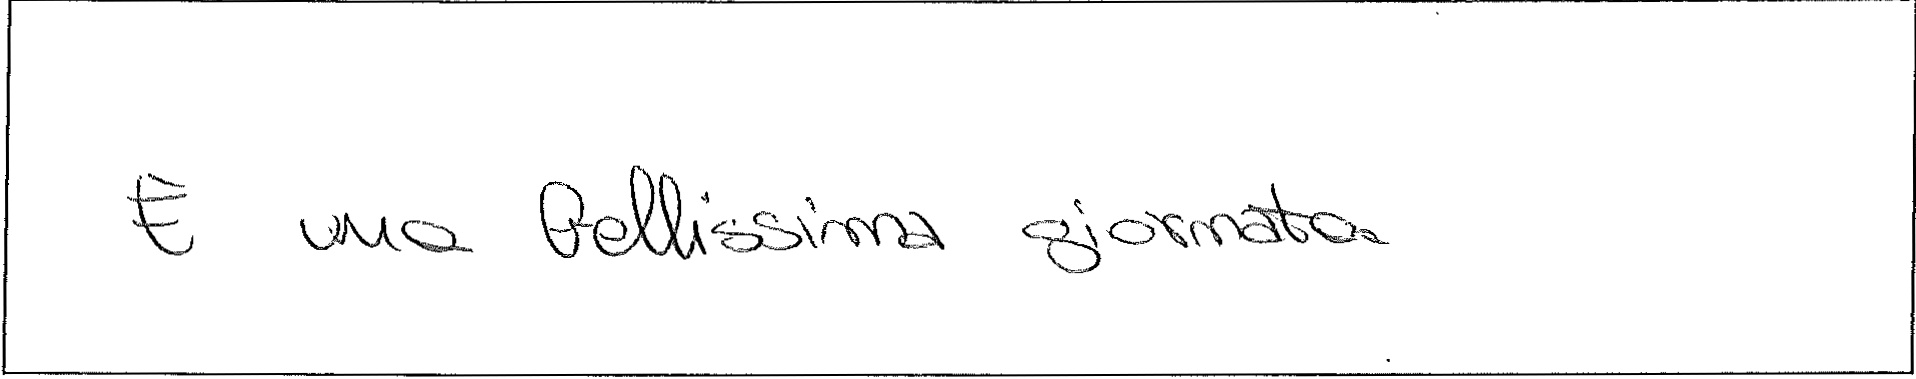 È una bellissima giornata